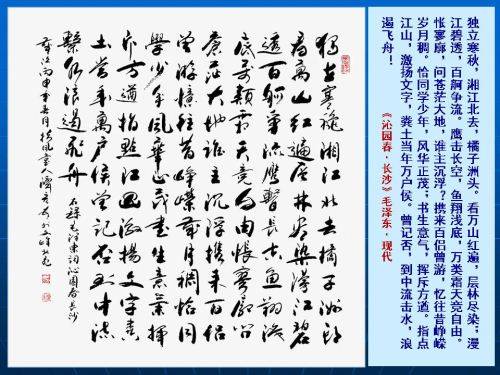 独立寒秋,湘江北去,橘子洲头。看万山红遍,层林尽染;漫
江碧透,百舸争流。鹰击长空,鱼翔浅底,万类霜天竞自由。
怅寥廓,问苍茫大地,谁主沉浮?携来百侣曾游,忆往昔峥嵘
岁月稠。恰同学少年,风华正茂;书生意气,挥斥方遒。指点
江山,激扬文字,粪土当年万户侯。曾记否,到中流击水,浪
遏飞舟!
《沁园春·长沙》毛泽东·现代
獨立寒穐湘江北去橘子洲頭
看萬山紅遍層林盡染漫江碧
透百舸爭流鷹擊長空魚翔淺
底萬類霜天竞自由悵寥廓問
蒼茫大地誰主沉浮攜来百侣
曾游憶往昔崢嶸歲月稠恰同
學少年風華正茂書生意氣揮
斥方遒指點江山激揚文字糞
土當年萬户侯曾記否到中流
擊水浪遏飛舟
右録毛泽東詞沁園春長沙
丙申年五月